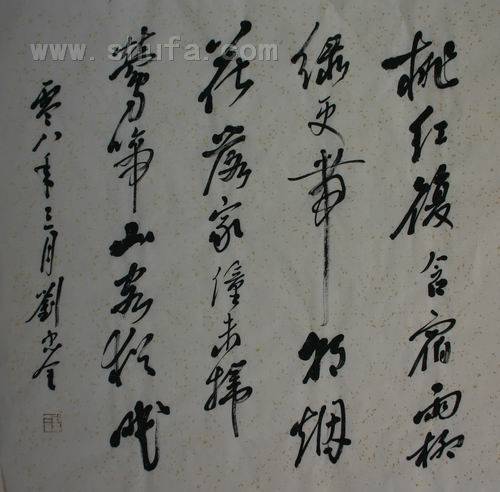 桃红複含宿雨柳
绿更带朝烟
花落家僮未掃
莺啼山客犹眠
零八年三月劉
www.shufa.com